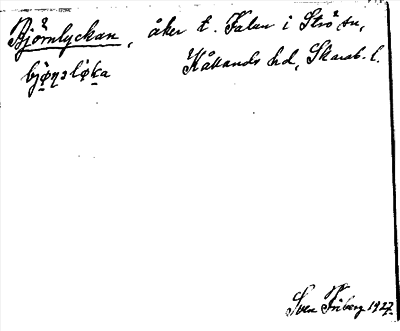 Björnlyckan, åker t. Falan i Strö sn,
Kållands hd, Skarab. l.
Sven Friberg 1927.